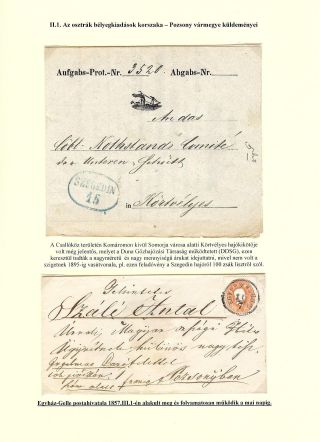 II.1. Az osztrák bélyegkiadások korszaka – Pozsony vármegye küldeményei
Aufgabs-Prot.-Nr. 3520. Abgabs-Nr.
An das
Löbl. Nothstands Comité
der Unteren Schütt
SZEGEDIN
15
in Körtvélyes
A Csallóköz területén Komáromon kívül Somorja városa alatti Körtvélyes hajókikötője
volt még jelentős, melyet a Duna Gőzhajózási Társaság működtetett (DDSG), ezen
keresztül tudták a nagyméretű és nagy mennyiségű árukat idejuttatni, mivel nem volt a
szigetnek 1895-ig vasútvonala, pl. ezen feladóvény a Szegedin hajóról 100 zsák lisztről szól.
Tekintetes
Szálé Antal
Urnak, Magyar
nagy
franco Pozsonyban
Egyház-Gelle postahivatala 1857.III.1-én alakult meg és folyamatosan működik a mai napig.